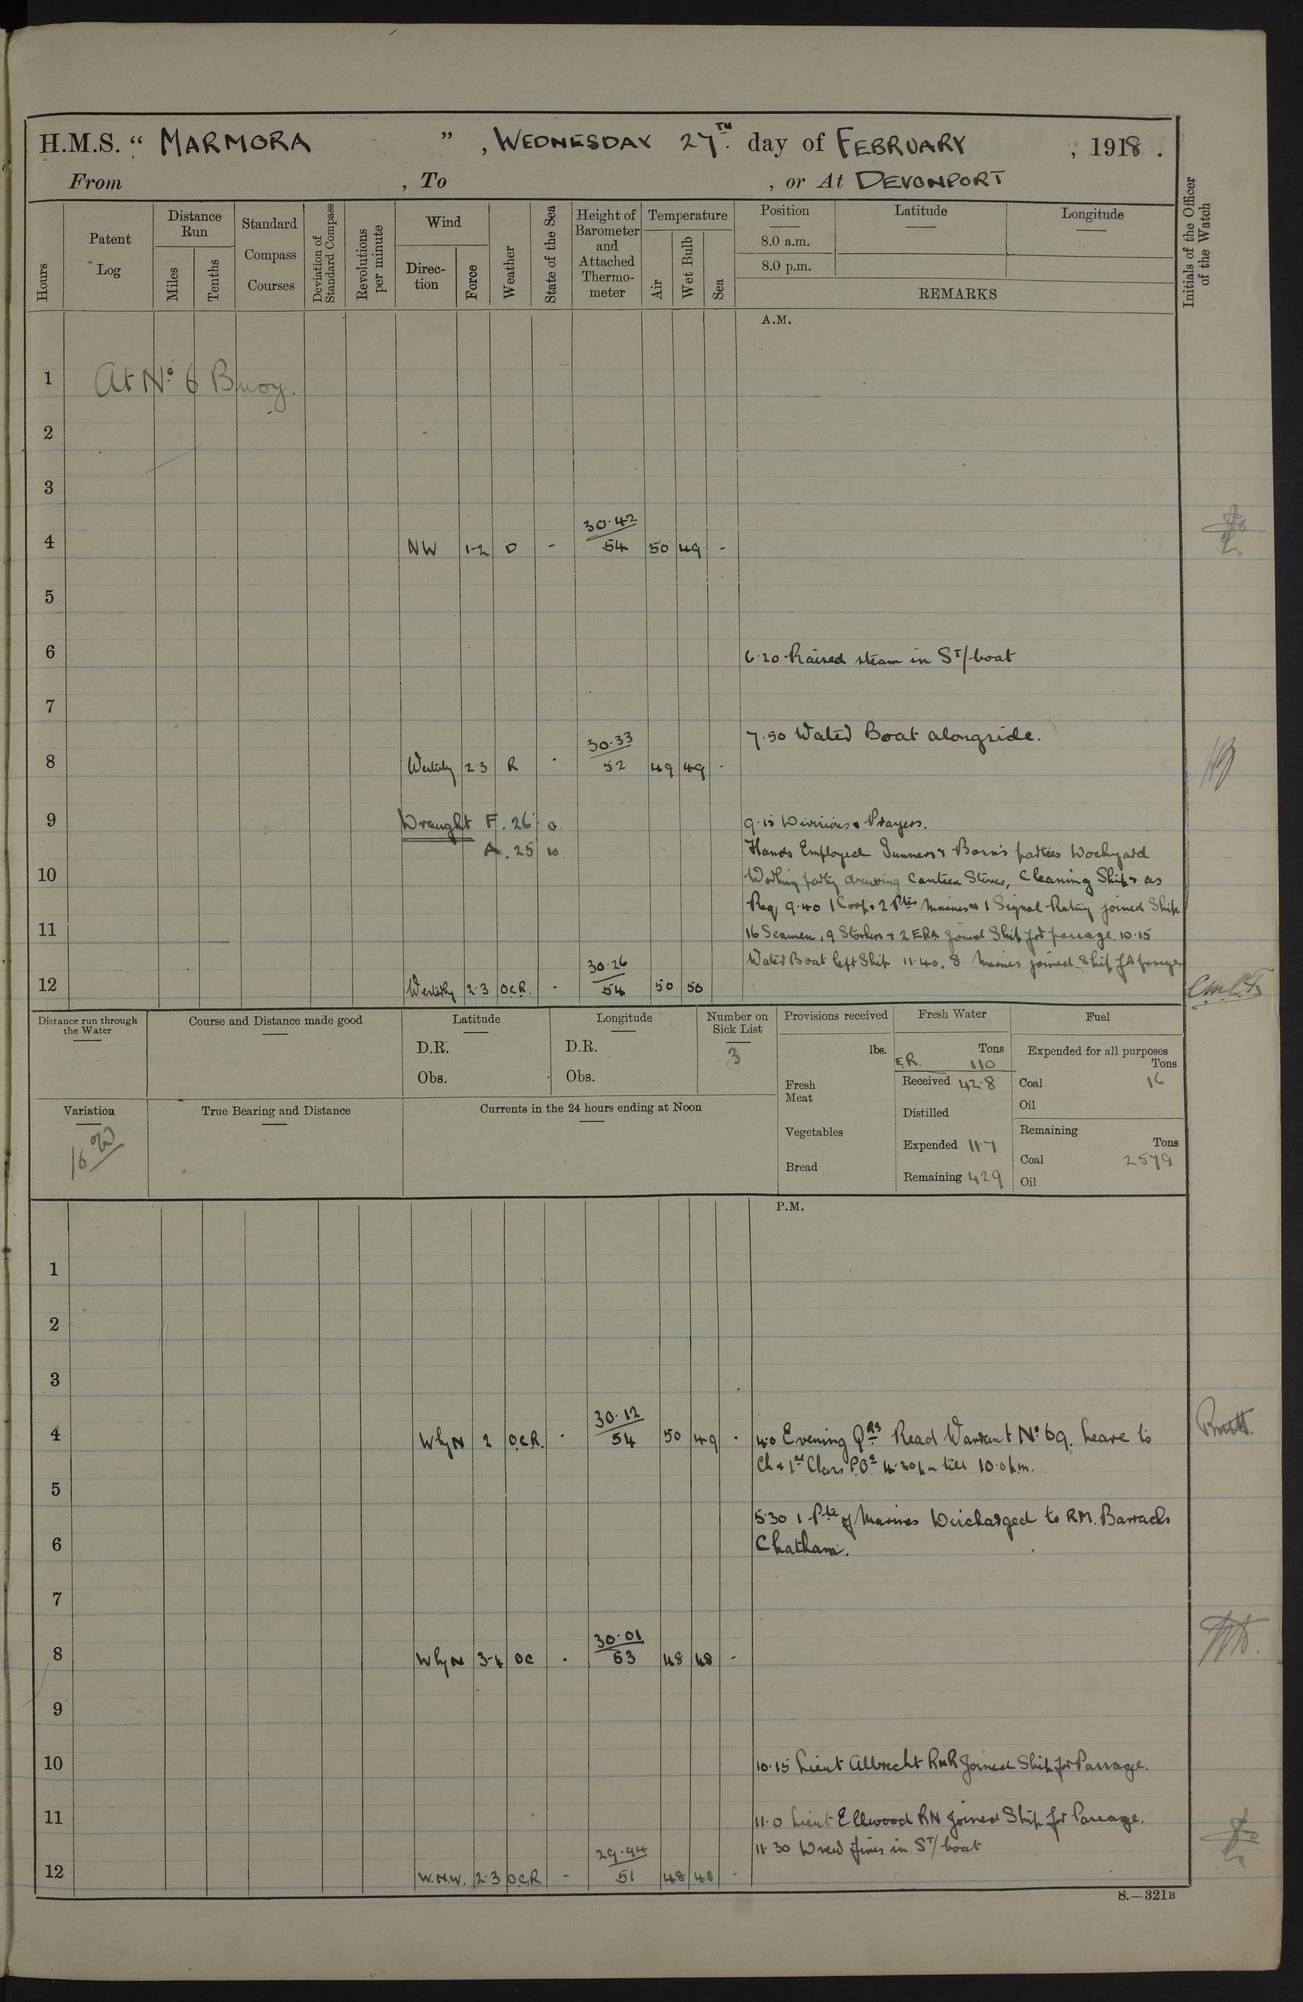 H.M.S. “ MARMORA ” , WEDNESDAY 27TH day of FEBRUARY , 1918 .
From , To , or At DEVONPORT
Hours
Patent Log
Distance Run
Miles
Tenths
Standard Compass Courses
Deviation of Standard Compass
Revolutions per minute
Wind
Direc-tion
Force
Weather
State of the Sea
Height of Barometer and Attached Thermo-meter
Temperature
Air
Wet Bulb
Sea
Position
8.0 a.m.
8.0 p.m.
Latitude
Longitude
REMARKS
Initials of the Officer of the Watch
A.M.
1 At No 6 Buoy.
2
3
4 NW 1-2 O - 30.42 54 50 49 -
5
6 6.20 Raised steam in St/boat
7
7.50 Water Boat alongside.
8 Westerly 2.3 R - 30.33 52 49 49 -
9 Draught F. 26 0 9.15 Divisions & Prayers.
A. 25 10 Hands Employed Gunners & Bosn's parties Dockyard
10 Working party drawing Canteen Stores, Cleaning Ship & as
Req 9.40 1 Corp & 2 Ptes Marines & 1 Signal Rating joined Ship
11 16 Seamen, 9 Stokers & 2 ERA joined Ship for passage. 10.15
Water Boat left Ship 11.40. 8 Marines joined Ship for passage
12 Westerly 2.3 OCR. - 30.26 54 50 50
Distance run through the Water
Course and Distance made good
Latitude
D.R.
Obs.
Longitude
D.R.
Obs.
Number on Sick List
3
Provisions received
lbs.
Fresh Meat
Vegetables
Bread
Fresh Water
Tons
E.R. 110
Received 428
Distilled
Expended 117
Remaining 429
Fuel
Expended for all purposes
Tons
Coal 16
Oil
Remaining
Tons
Coal 2579
Oil
Variation
16 W
True Bearing and Distance
Currents in the 24 hours ending at Noon
P.M.
1
2
3
4 WbyN 2 O.C.R. - 30.12 54 50 49 - 4.0 Evening Qrs Read Warrant No 69. Leave to
Ch & 1st Class P.Os 4.30pm till 10.0pm.
5
5.30 1 Pte of Marines Discharged to R.M. Barracks
6 Chatham.
7
8 WbyN 3-4 OC . 30.01 53 48 48 -
9
10 10.15 Lieut Albrecht RNR Joined Ship for Passage.
11 11.0 Lieut Ellwood RN Joined Ship for Passage.
11.30 Drew fires in St/boat
12 W.N.W. 2.3 O.C.R. - 29.94 51 48 48 -
8.—321B